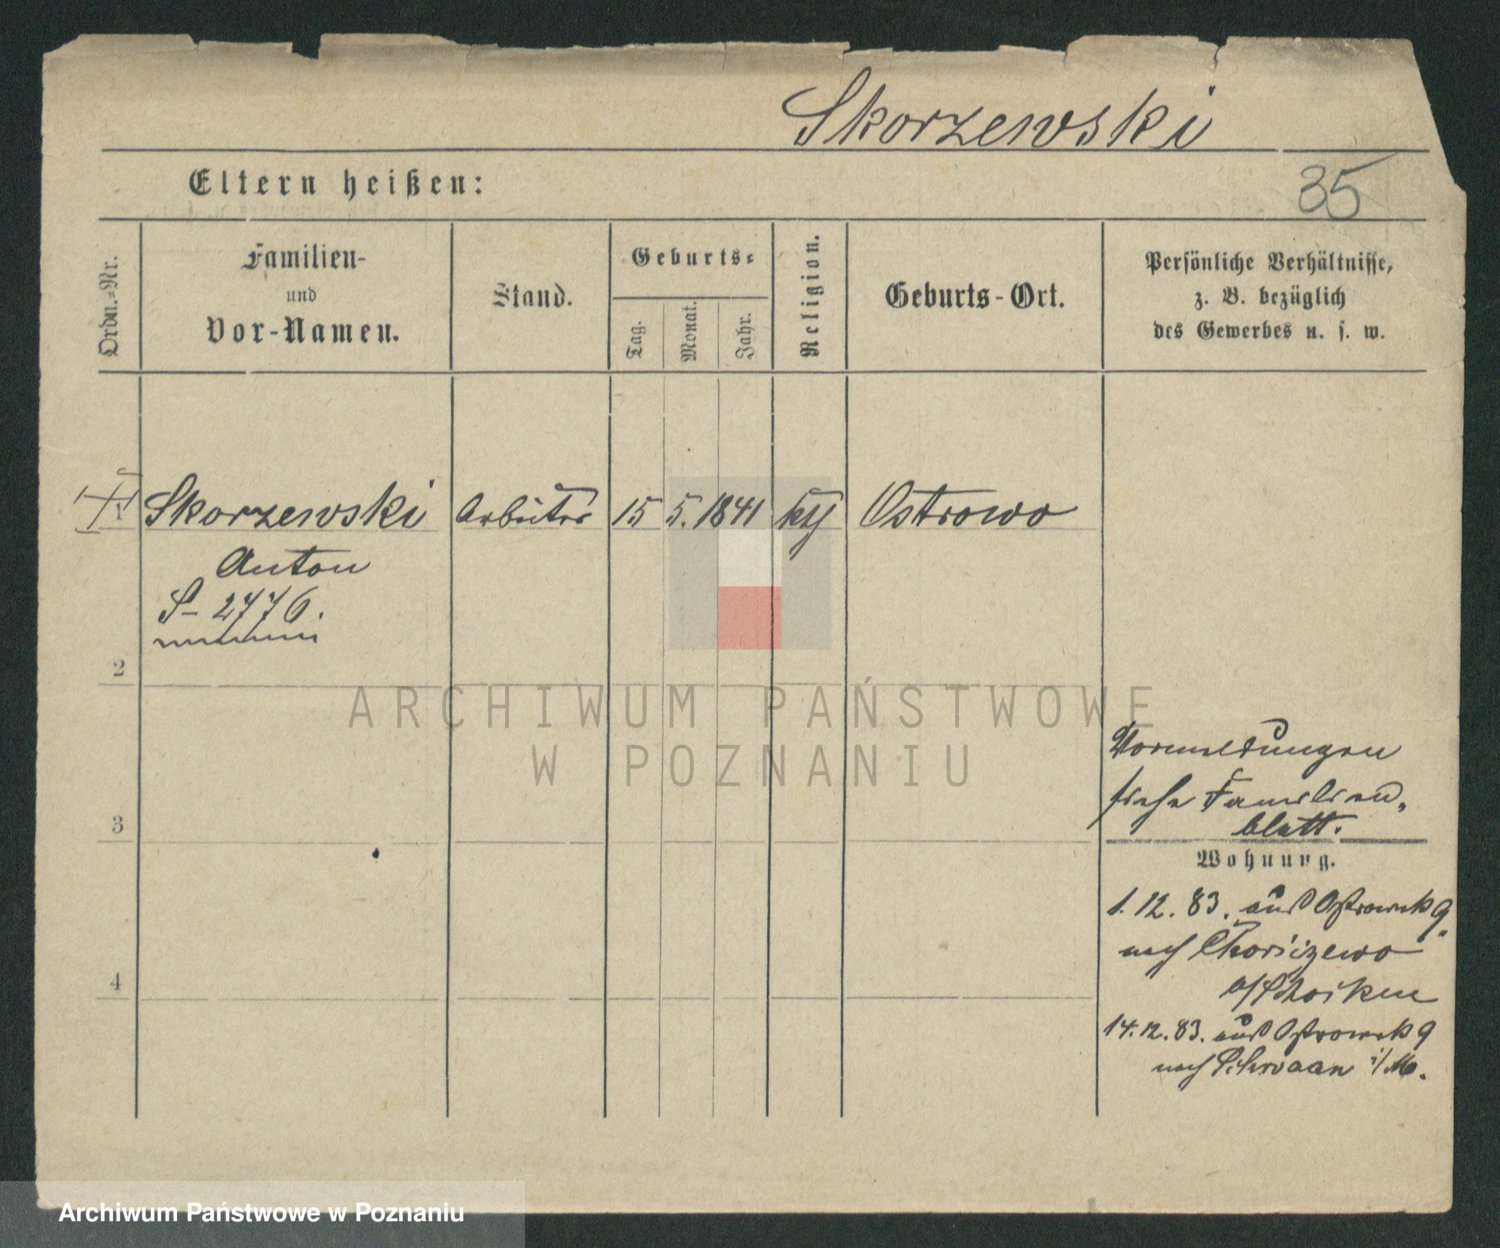 Skorzewski
35
Eltern heißen:
Ordn.-Nr.
Familien-
und
Vor-Namen.
Stand.
Geburts-
Tag.
Monat.
Jahr.
Religion.
Geburts-Ort.
Persönliche Verhältnisse,
z. B. bezüglich
des Gewerbes u. s. w.
1 Skorzewski Arbeiter 15 5. 1841 kth Ostrowo
Anton
S- 2776.
2
ARCHIWUM PAŃSTWOWE
W POZNANIU
Vormeldungen
siehe Familien-
blatt.
3
Wohnung.
1.12.83. aus Ostrowek 9
nach
4
14.12.83. aus Ostrowek 9
nach Schwaan i/M.
Archiwum Państwowe w Poznaniu